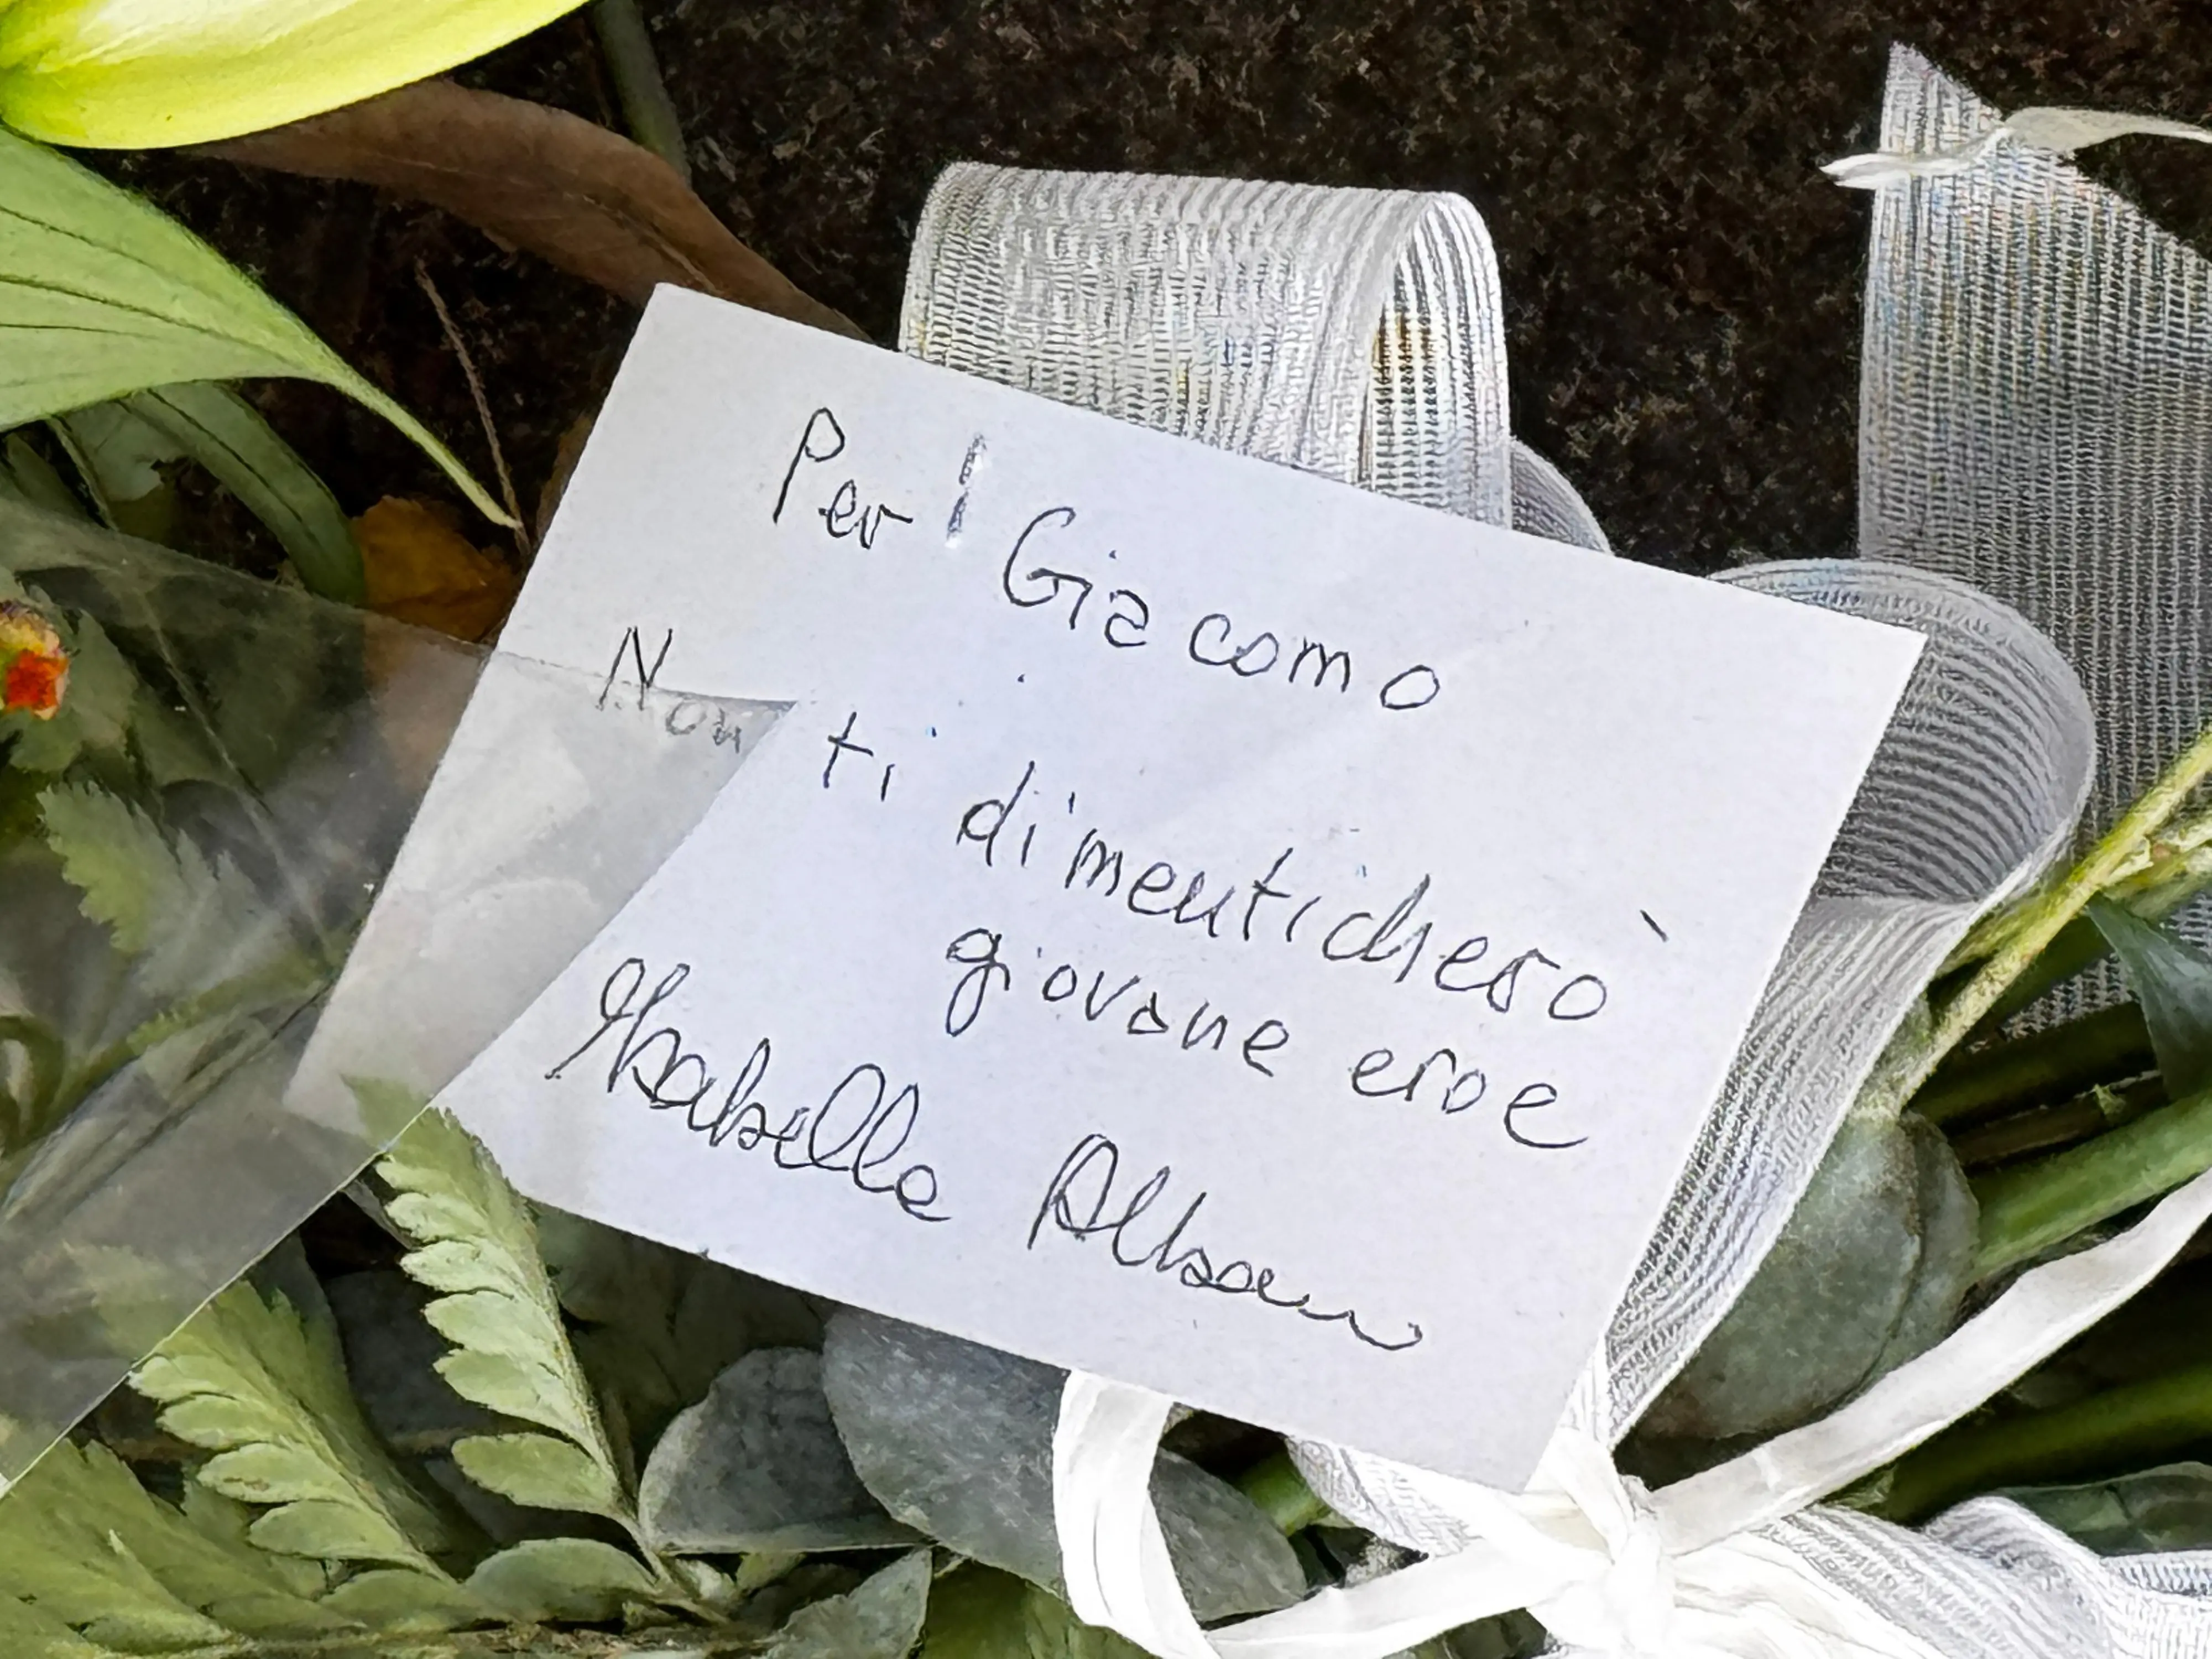 Per Giacomo
Non ti dimenticherò
giovane eroe
Isabella Alban